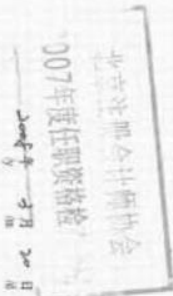 北京注册会计师协会
2007年度任职资格检
月 20 日